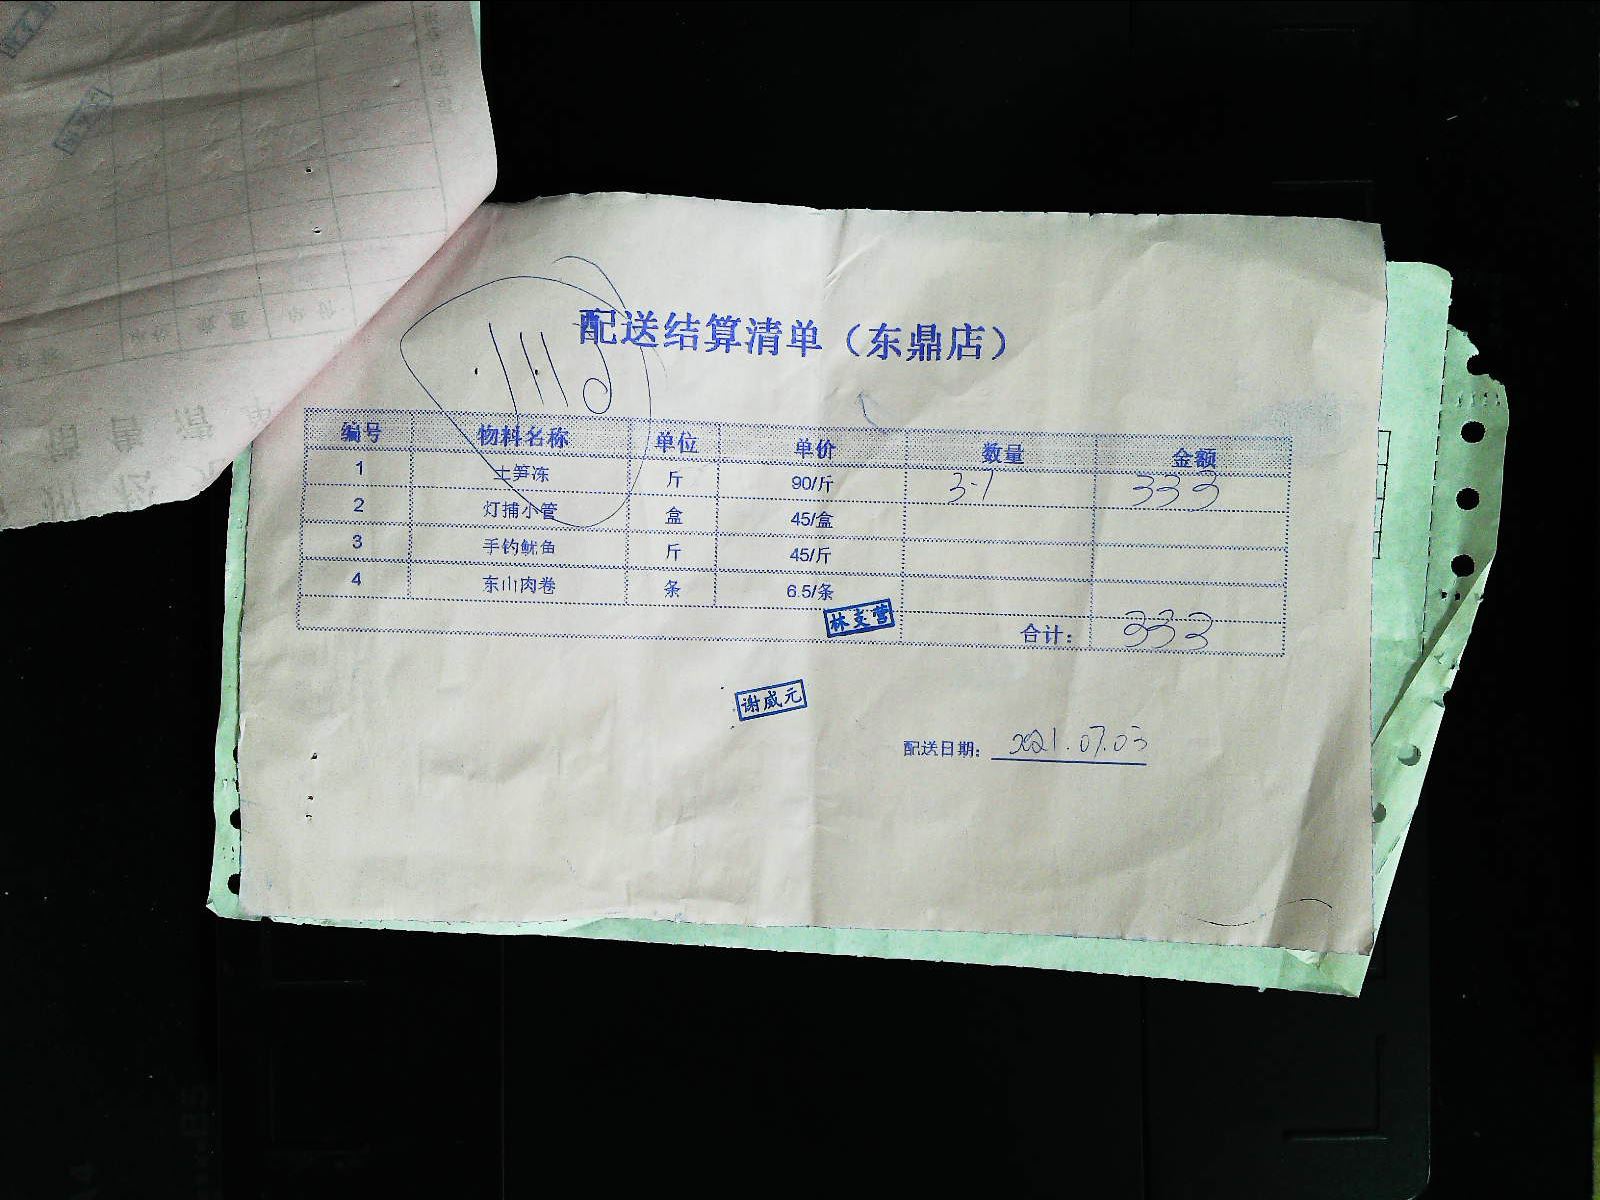 配送结算清单（东鼎店）
编号 物料名称 单位 单价 数量 金额
1 土笋冻 斤 90/斤 3.7 333
2 灯捕小管 盒 45/盒
3 手钓鱿鱼 斤 45/斤
4 东山肉卷 条 6.5/条
林支营
合计： 333
谢威元
配送日期： 2021.07.03